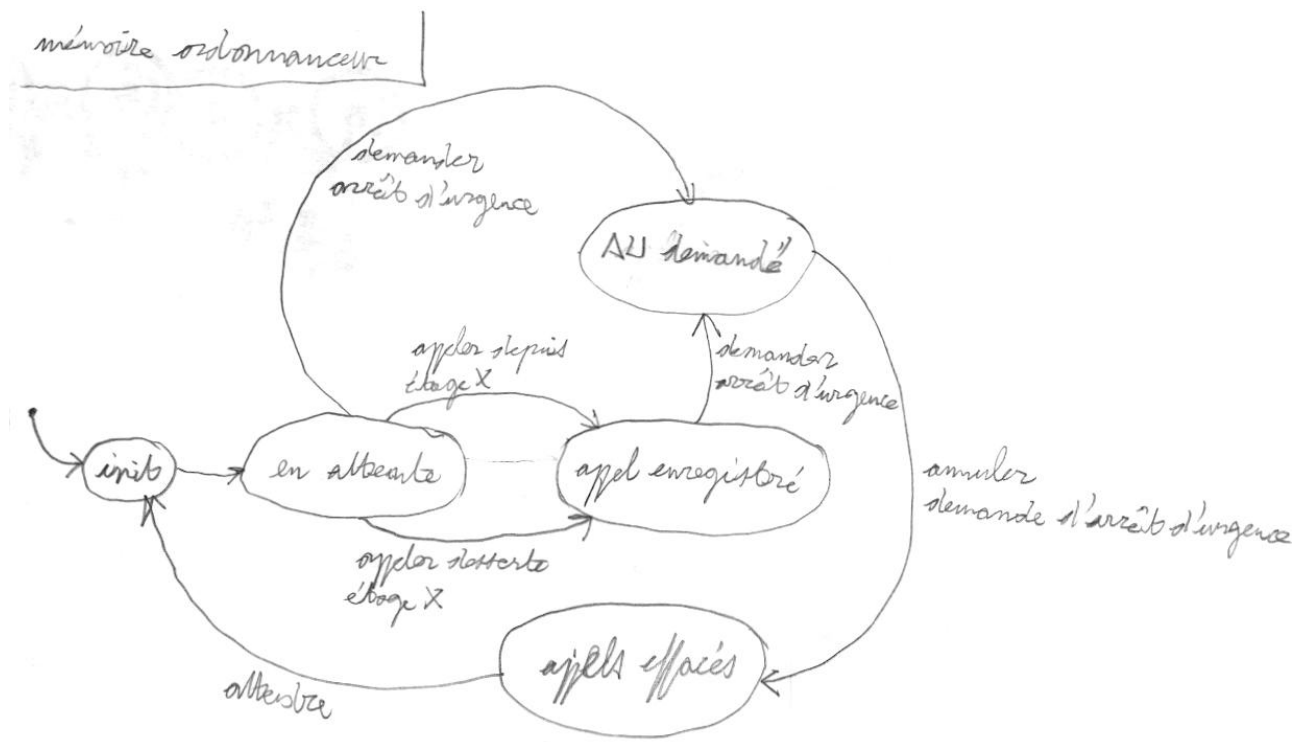 mémoire ordonnanceur
demander
arrêt d'urgence
AU demandé
appeler depuis
étage X
demander
arrêt d'urgence
init
en attente
appel enregistré
annuler
demande d'arrêt d'urgence
appeler desserte
étage X
appels effacés
attendre